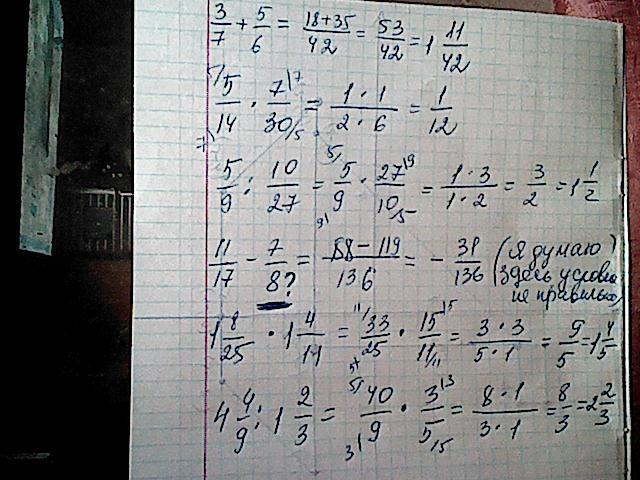 3/7 + 5/6 = (18+35)/42 = 53/42 = 1 11/42
5/14 · 7/30 = (1 · 1)/(2 · 6) = 1/12
5/9 : 10/27 = 5/9 · 27/10 = (1 · 3)/(1 · 2) = 3/2 = 1 1/2
11/17 − 7/8? = (88 − 119)/136 = − 31/136 (Я думаю здесь условие не правильно)
1 8/25 · 1 4/11 = 33/25 · 15/11 = (3 · 3)/(5 · 1) = 9/5 = 1 4/5
4 4/9 : 1 2/3 = 40/9 · 3/5 = (8 · 1)/(3 · 1) = 8/3 = 2 2/3